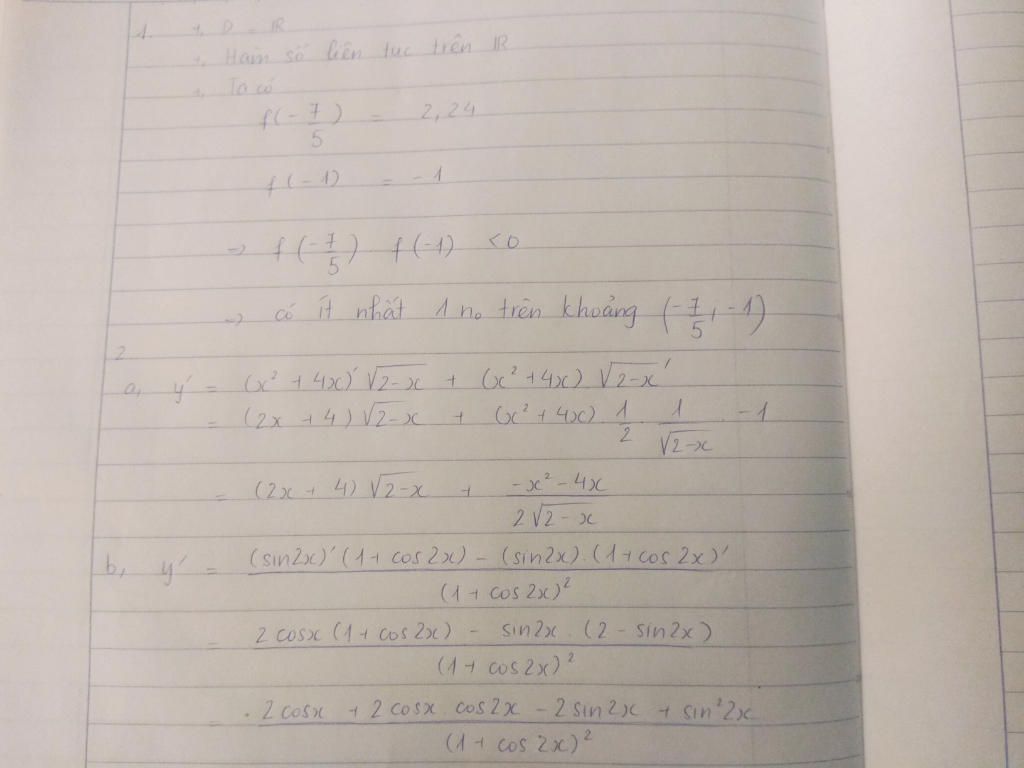 1. +, D = ℝ
+, Hàm số liên tục trên ℝ
+, Ta có
f(-7/5) = 2,24
f(-1) = -1
=> f(-7/5) f(-1) < 0
=> có ít nhất 1 no trên khoảng (-7/5, -1)
2.
a, y' = (x² + 4x)' √(2-x) + (x² + 4x) √(2-x)'
= (2x + 4) √(2-x) + (x² + 4x) . 1/2 . 1/√(2-x) . -1
= (2x + 4) √(2-x) + (-x² - 4x)/(2√(2-x))
b, y' = ((sin2x)' (1 + cos2x) - (sin2x).(1 + cos2x)')/(1 + cos2x)²
= (2cosx (1 + cos2x) - sin2x . (2 - sin2x))/(1 + cos2x)²
= (2cosx + 2cosx cos2x - 2sin2x + sin²2x)/(1 + cos2x)²